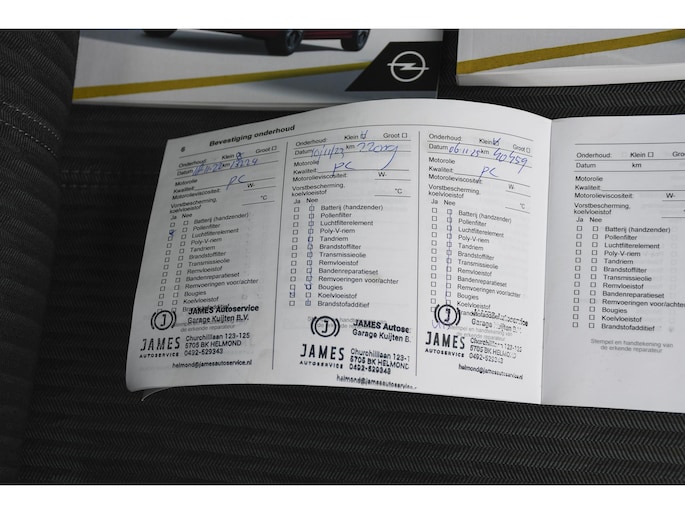 8 Bevestiging onderhoud
Onderhoud: Klein ☑ Groot ☐
Datum km
Motorolie
Kwaliteit: PC
Motorolieviscositeit: W-
Vorstbescherming, koelvloeistof °C
Ja Nee
Batterij (handzender)
Pollenfilter
Luchtfilterelement
Poly-V-riem
Tandriem
Brandstoffilter
Transmissieolie
Remvloeistof
Bandenreparatieset
Remvoeringen voor/achter
Bougies
Koelvloeistof
Brandstofadditief
JAMES Autoservice
Garage Kuijten B.V.
JAMES
AUTOSERVICE
Churchilllaan 123-125
5705 BK HELMOND
0492-529343
helmond@jamesautoservice.nl
Onderhoud: Klein ☑ Groot ☐
Datum 10/11/23 km
Motorolie
Kwaliteit: PC
Motorolieviscositeit: W-
Vorstbescherming,
koelvloeistof °C
Ja Nee
Batterij (handzender)
Pollenfilter
Luchtfilterelement
Poly-V-riem
Tandriem
Brandstoffilter
Transmissieolie
Remvloeistof
Bandenreparatieset
Remvoeringen voor/achter
Bougies
Koelvloeistof
Brandstofadditief
JAMES Autose
Garage Kuijten B.
JAMES
AUTOSERVICE
Churchilllaan 123-1
5705 BK HELMOND
0492-529343
helmond@jamesautoservice.n
Onderhoud: Klein ☑ Groot ☐
Datum 06-11-25 km 40959
Motorolie
Kwaliteit: PC
Motorolieviscositeit: W-
Vorstbescherming,
koelvloeistof °C
Ja Nee
Batterij (handzender)
Pollenfilter
Luchtfilterelement
Poly-V-riem
Tandriem
Brandstoffilter
Transmissieolie
Remvloeistof
Bandenreparatieset
Remvoeringen voor/achter
Bougies
Koelvloeistof
Garage Kuijten B.V.
JAMES
AUTOSERVICE
Churchilllaan 123-
5705 BK HELMOND
0492-529343
helmond@jamesautoservice.nl
Onderhoud: Klein ☐
Datum km
Motorolie
Kwaliteit:
Motorolieviscositeit:
Vorstbescherming,
koelvloeistof
Ja Nee
Batterij (handzender)
Pollenfilter
Luchtfilterelement
Poly-V-riem
Tandriem
Brandstoffilter
Transmissieolie
Remvloeistof
Bandenreparatieset
Remvoeringen voor/achter
Bougies
Koelvloeistof
Brandstofadditief
Stempel en handtekening van
de erkende reparateur